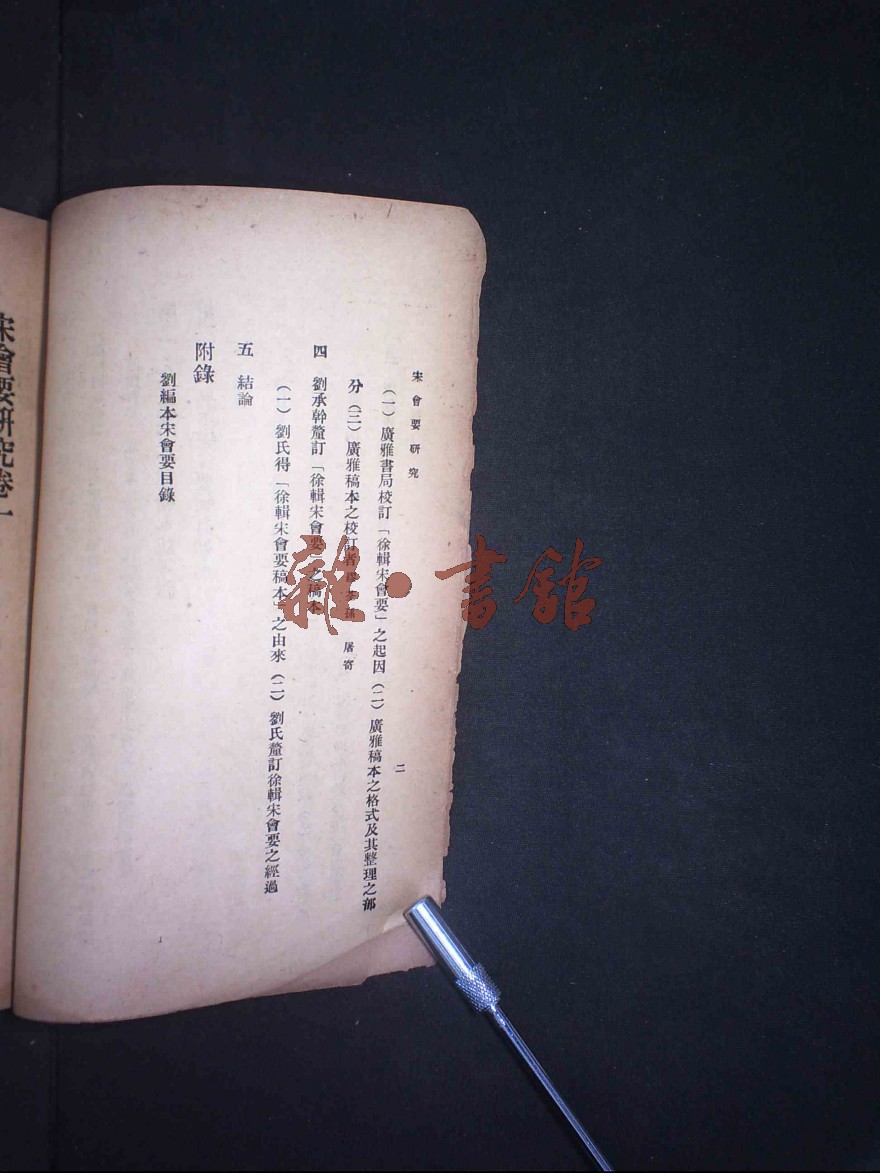 宋會要研究
二
（一）廣雅書局校訂「徐輯宋會要」之起因（二）廣雅稿本之格式及其整理之部
分（三）廣雅稿本之校訂者 屠寄
四 劉承幹釐訂「徐輯宋會要」之稿本
（一）劉氏得「徐輯宋會要稿本」之由來（二）劉氏釐訂徐輯宋會要之經過
五 結論
附錄
劉編本宋會要目錄
宋會要研究卷一
雜·書館